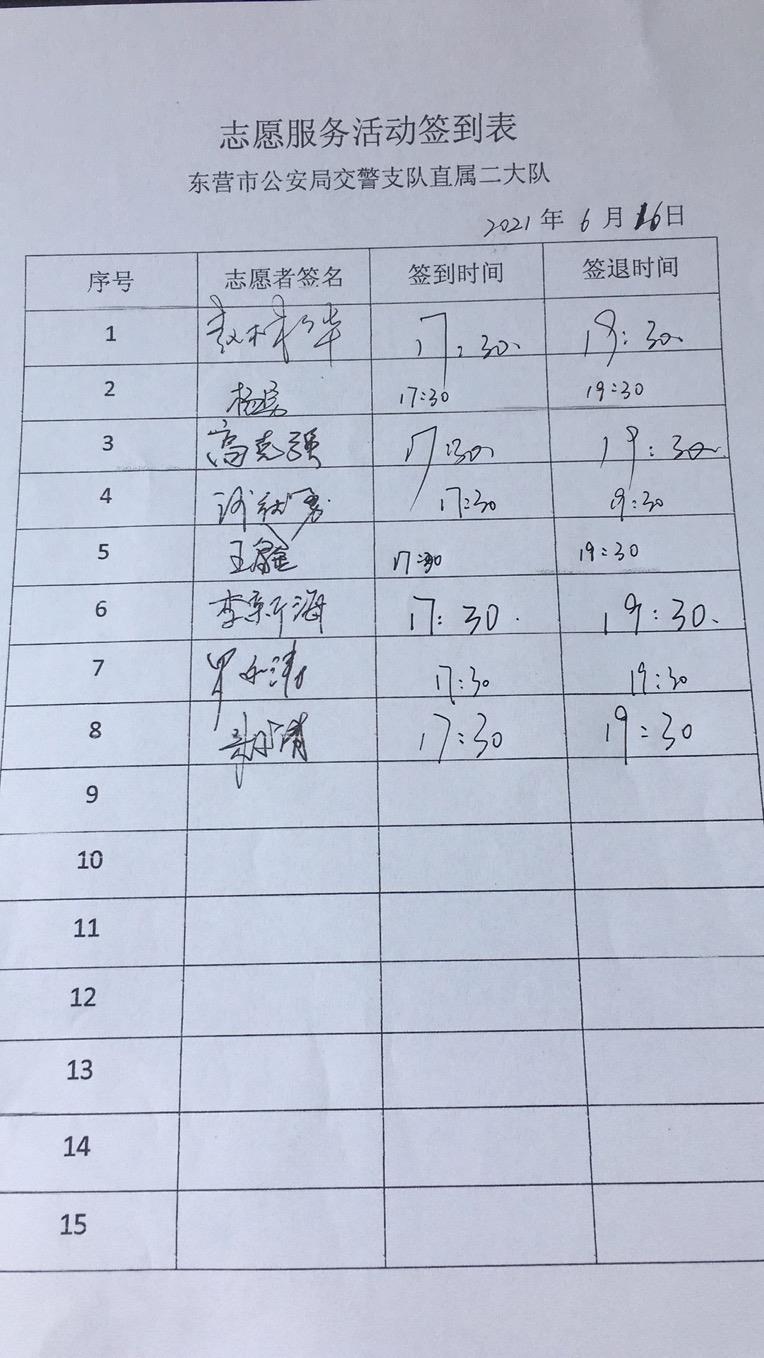 志愿服务活动签到表
东营市公安局交警支队直属二大队
2021年6月16日
序号 志愿者签名 签到时间 签退时间
1 17:30 19:30
2 杨 17:30 19:30
3 高克强 17:30 19:30
4 17:30 19:30
5 王 17:30 19:30
6 李新海 17:30 19:30
7 17:30 19:30
8 17:30 19:30
9
10
11
12
13
14
15